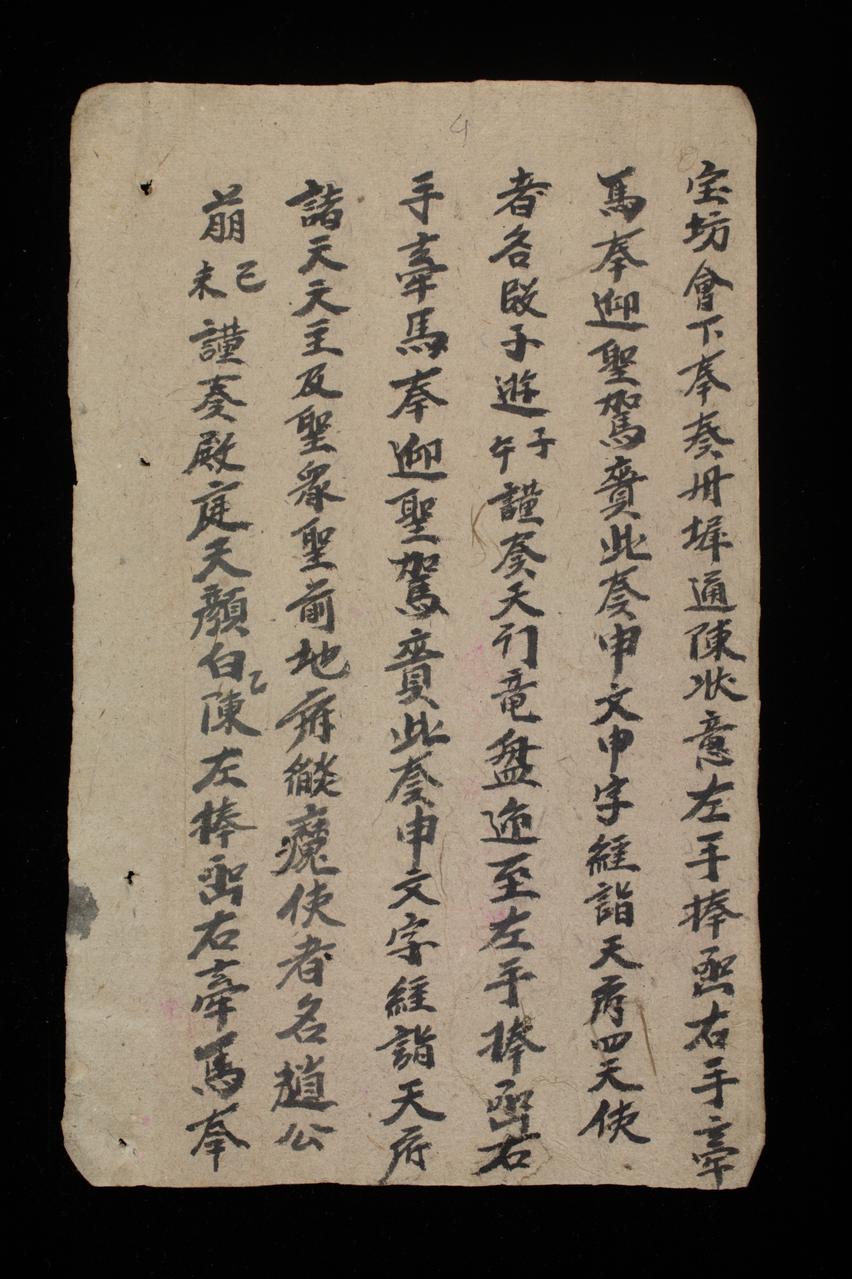 宝坊會下奉奏丹墀通陳状意左手捧函右手牽
馬奉迎聖駕賫此奏申文申字経詣天府四天使
者名段子遊子午謹奏天行竜盤迎至左手捧函右
手牽馬奉迎聖駕賫此奏申文字経詣天府
諸天天主及聖眾聖前地府魔使者名趙公
萠己未謹奏殿庭天顏白陳乙左捧函右牽馬奉